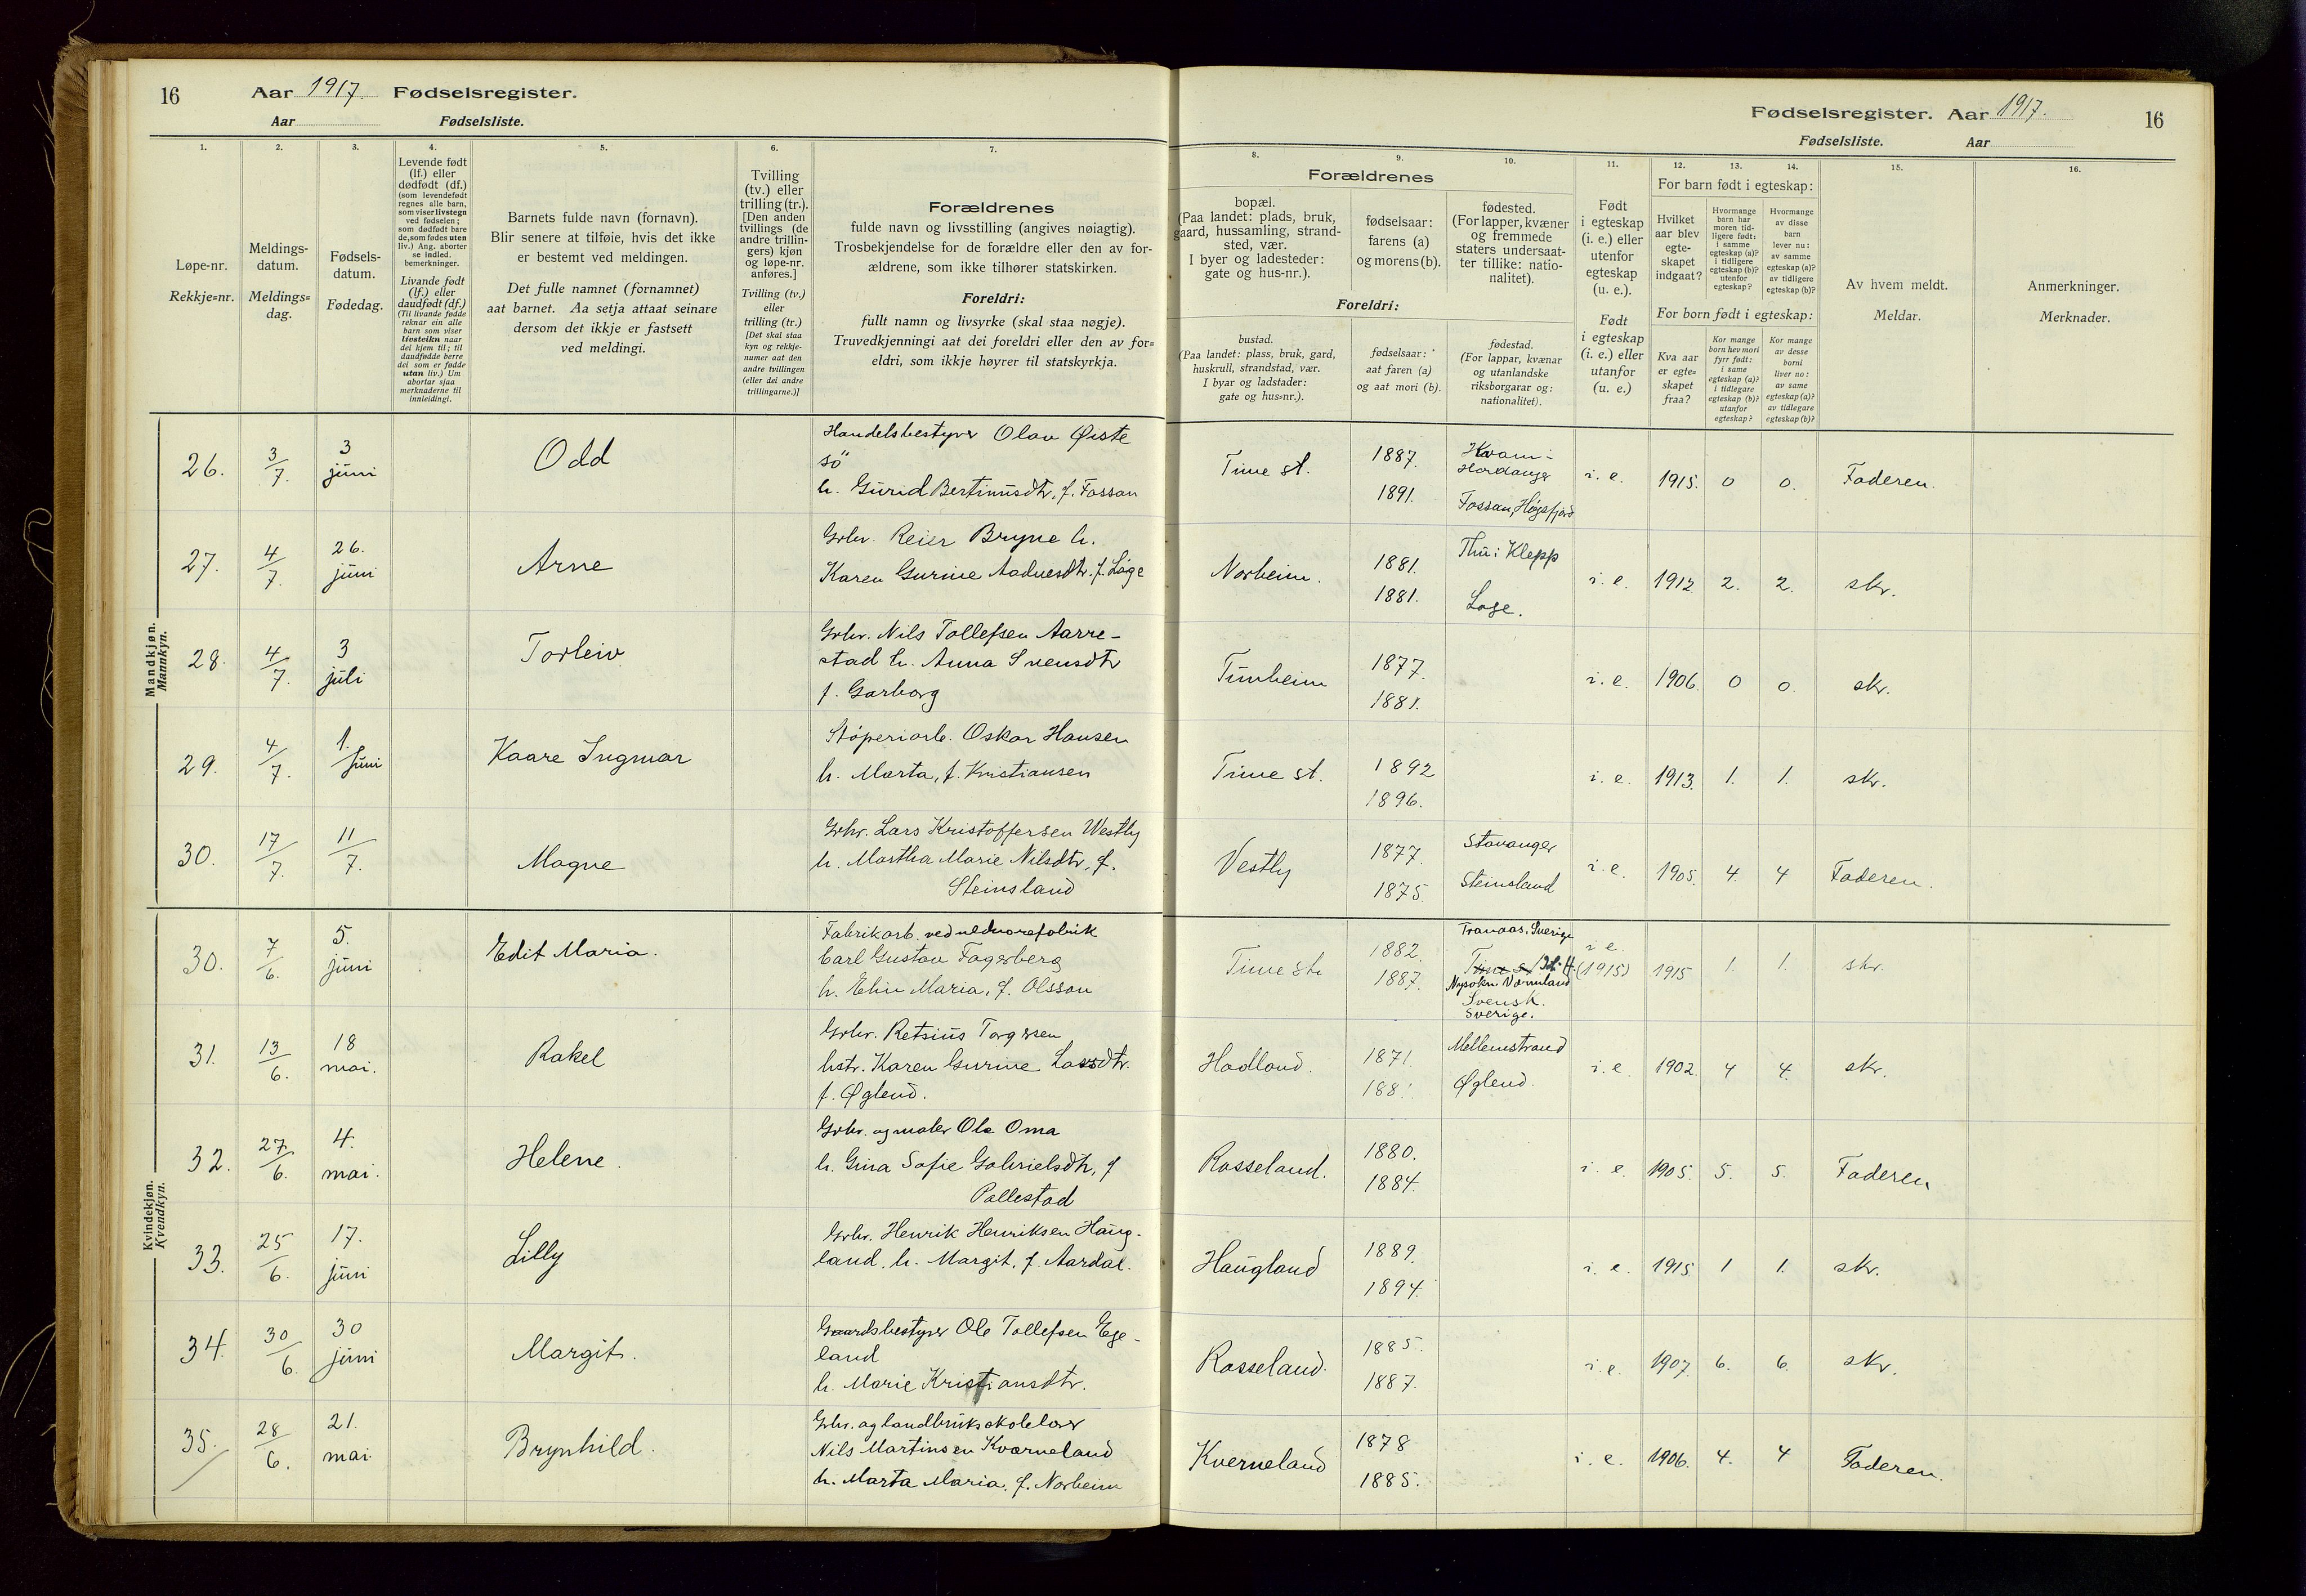 16
Aar 1917. Fødselsregister.
Aar Fødselsliste.
1.
Løpe-nr.
Rekkje=nr.
2.
Meldings-
datum.
Meldings=
dag.
3.
Fødsels-
datum.
Fødedag.
4.
Levende født
(lf.) eller
dødfødt (df.)
(som levendefødt
regnes alle barn,
som viser livstegn
ved fødselen;
som dødfødt bare
de, som fødes uten
liv.) Ang. aborter
se indled.
bemerkninger.
Livande født
(lf.) eller
daudfødt (df.)
(Til livande fødde
reknar ein alle
barn som viser
livsteikn naar
dei kjem til; til
daudfødde berre
dei som er fødde
utan liv.) Um
abortar sjaa
merknaderne til
innleidingi.
5.
Barnets fulde navn (fornavn).
Blir senere at tilføie, hvis det ikke
er bestemt ved meldingen.
Det fulle namnet (fornamnet)
aat barnet. Aa setja attaat seinare
dersom det ikkje er fastsett
ved meldingi.
6.
Tvilling
(tv.) eller
trilling (tr.).
[Den anden
tvillings (de
andre trillin-
gers) kjøn
og løpe-nr.
anføres.]
Tvilling (tv.)
eller
trilling (tr.)
[Det skal staa
kyn og rekkje-
numer aat den
andre tvillingen
(eller dei andre
trillingarne.)]
7.
Forældrenes
fulde navn og livsstilling (angives nøiagtig).
Trosbekjendelse for de forældre eller den av for-
ældrene, som ikke tilhører statskirken.
Foreldri:
fullt namn og livsyrke (skal staa nøgje).
Truvedkjenningi aat dei foreldri eller den av for=
eldri, som ikkje høyrer til statskyrkja.
Mandkjøn.
Mannkyn.
26. 3/7. 3 juni Odd
Handelsbestyrer Olav Øiste
sö
h. Gurid Bertinusdtr, f. Fossan
27. 4/7. 26. juni Arne
Grbr. Reier Bryne h.
Karen Gurine Aadnesdtr. f. Løge
28. 4/7. 3 juli Torleiv
Grbr. Nils Tollefsen Aarre-
stad h. Anna Svensdtr
f. Garborg
29. 4/7. 1. Juni Kaare Ingmar
Støperiarb. Oskar Hansen
h. Marta, f. Kristiansen
30. 17/7. 11/7. Magne
Grbr. Lars Kristoffersen Westly
h. Martha Marie Nilsdtr, f.
Steinsland
Kvindekjøn.
Kvendkyn.
30. 7/6. 5. juni Edit Maria.
Fabrikarb. ved uldvarefabrik
Carl Gustav Fagerberg
h. Elin Maria, f. Olsson
31. 13/6. 18 mai. Rakel
Grbr. Retsius Torgersen
hstr. Karen Gurine Larsdtr.
f. Øglend.
32. 27/6. 4. mai. Helene.
Grbr. og maler Ole Oma
h. Gina Sofie Gabrielsdtr, f
Pollestad
33. 25/6. 17. juni Lilly
Grbr. Henrik Henriksen Haug-
land, h. Margit, f. Aardal.
34. 30/6. 30 juni Margit.
Gaardsbestyrer Ole Tollefsen Ege-
land
h. Marie Kristiansdtr.
35. 28/6. 21. mai Brynhild.
Grbr. og landbruksskolelærer
Nils Martinsen Kværneland
h. Marta Maria, f. Norheim
Fødselsregister. Aar 1917.
16
Fødselsliste. Aar
8.
Forældrenes
bopæl.
(Paa landet: plads, bruk,
gaard, hussamling, strand-
sted, vær.
I byer og ladesteder:
gate og hus-nr.).
Foreldri:
bustad.
(Paa landet: plass, bruk, gard,
huskrull, strandstad, vær.
I byar og ladstader:
gate og hus=nr.).
9.
fødselsaar:
farens (a)
og morens (b).
fødselsaar:
aat faren (a)
og aat mori (b).
10.
fødested.
(For lapper, kvæner
og fremmede
staters undersaat-
ter tillike: natio-
nalitet).
fødestad.
(For lappar, kvænar
og utanlandske
riksborgarar og:
nationalitet).
11.
Født
i egteskap
(i. e.) eller
utenfor
egteskap
(u. e.).
Født
i egteskap
(i. e.) eller
utanfor
(u. e.)
12. 13. 14.
For barn født i egteskap:
Hvilket
aar blev
egte-
skapet
indgaat?
Hvormange
barn har
moren tid-
ligere født:
i samme
egteskap (a)?
i tidligere
egteskap (b)?
utenfor
egteskap?
Hvormange
av disse
barn
lever nu:
av samme
egteskap (a)?
av tidligere
egteskap (b)?
For born født i egteskap:
Kva aar
er egte=
skapet
fraa?
Kor mange
born hev mori
fyrr født:
i same
egteskap (a)?
i tidlegare
egteskap (b)?
utanfor
egteskap?
Kor mange
av desse
borni
liver no:
av same
egteskap (a)?
av tidlegare
egteskap (b)?
15.
Av hvem meldt.
Meldar.
16.
Anmerkninger.
Merknader.
Time st. 1887. Kvam i Hardanger
1891. Fossan, Høgsfjord
i. e. 1915. 0 0. Faderen.
Norheim. 1881. Thu i Klepp
1881. Løge.
i. e. 1912. 2. 2. skr.
Tunheim 1877.
1881.
i. e. 1906. 0 0. skr.
Time st. 1892
1896.
i. e. 1913. 1. 1. skr.
Vestly 1877. Stavanger
1875. Steinsland
i. e. 1905. 4. 4 Faderen.
Time st. 1882. Tranaas, Sverige
1887. Nysokn. Värmland
Svensk.
Sverige.
i e (1915) 1915 1. 1. skr.
Hadland. 1871. Mellemstrand
188 Øglend.
i. e. 1902. 4 4. skr.
Rosseland. 1880.
1884.
i. e. 1905. 5. 5. Faderen
Haugland 1889.
1894.
i. e. 1915 1 1. skr.
Rosseland. 1885.
1887.
i. e. 1907. 6. 6. skr.
Kverneland 1878
1885.
i. e. 1906. 4. 4 Faderen.